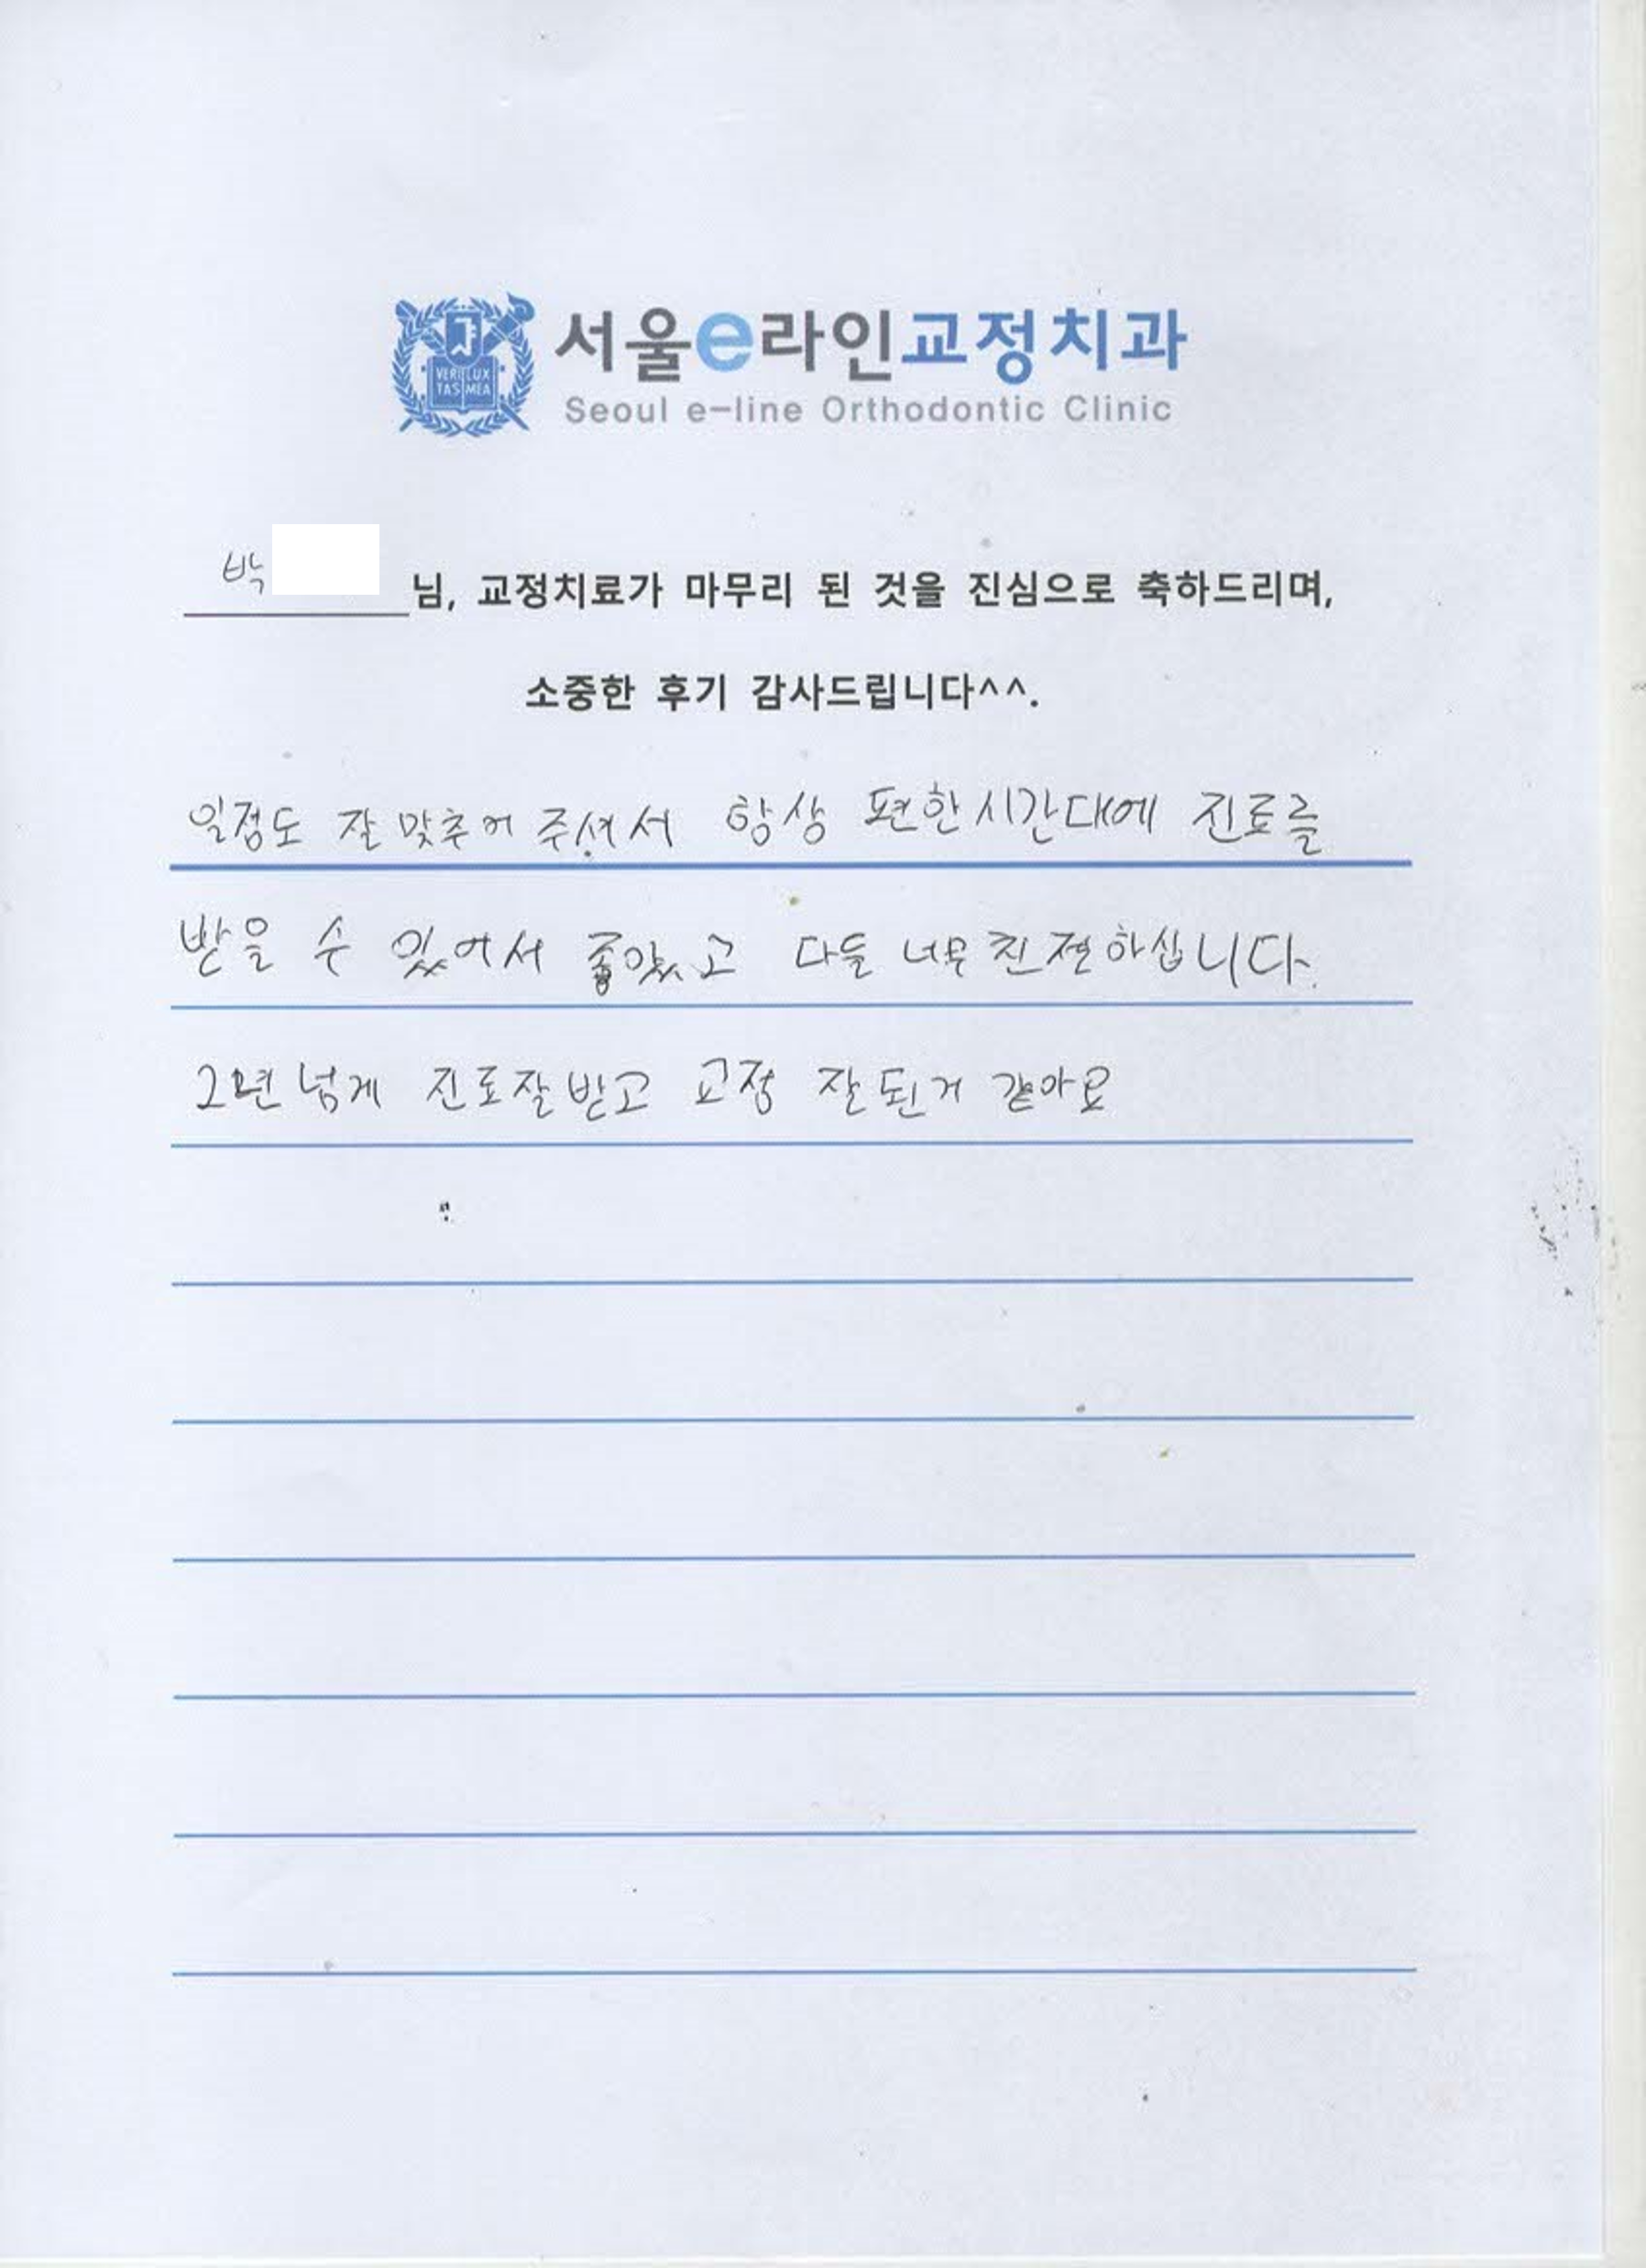 VERI LUX
TAS MEA
서울e라인교정치과
Seoul e-line Orthodontic Clinic
박 님, 교정치료가 마무리 된 것을 진심으로 축하드리며,
소중한 후기 감사드립니다^^.
일정도 잘 맞추어 주셔서 항상 편한 시간대에 진료를
받을 수 있어서 좋았고 다들 너무 친절하십니다.
2년 넘게 진료 잘 받고 교정 잘 된거 같아요